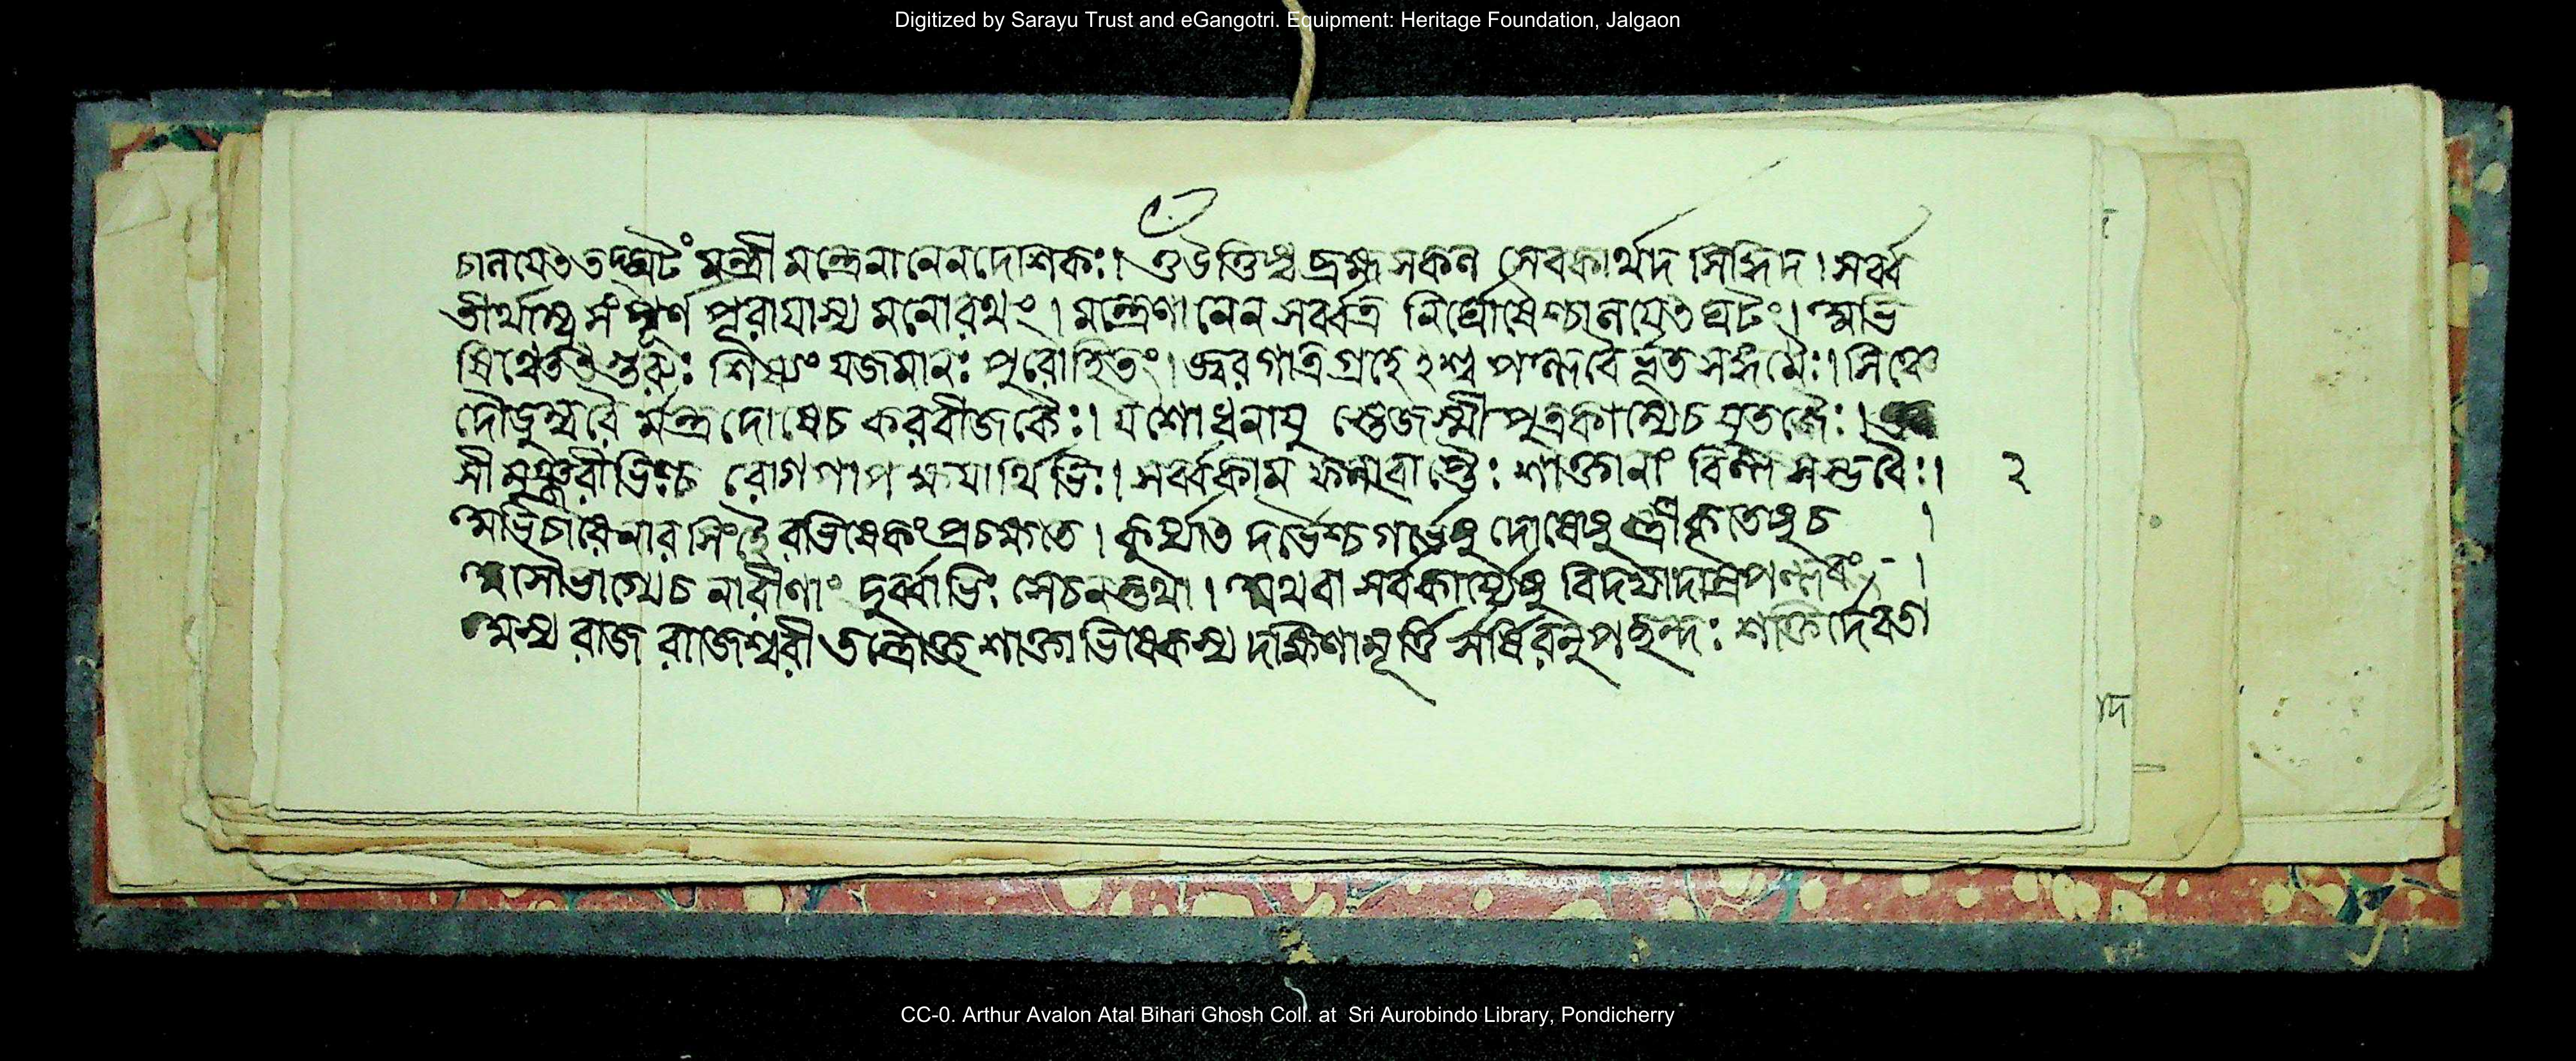 Digitized by Sarayu Trust and eGangotri. Equipment: Heritage Foundation, Jalgaon
চালয়েৎ তদ্ঘটং মন্ত্রী মন্ত্রেনানেন দেশিকঃ। ওঁ উত্তিষ্ঠ ব্রহ্মসকল সেবকার্থাদ সিদ্ধিদ। সর্ব্ব
তীর্থাম্বু সংপূর্ণ পূরয়াস্য মনোরথং। মন্ত্রেণানেন সর্ব্বত্র নির্ঘোষৈশ্চালয়েৎ ঘটং। অভি
ষিঞ্চেত্তু গুরুঃ শিষ্যং যজমানঃ পুরোহিতং। জ্বর গাত্র গ্রহে ২ শ্ব পল্লবৈ র্ভূত সঙ্গমৈঃ। সিঞ্চে
দৌডুম্বরৈ র্মন্ত্র দোষেচ করবীজকৈঃ। যশোধনায়ু পুত্রকাম্যেচ ঘৃতজৈঃ।
সী মঞ্জরীভিশ্চ রোগপাপ ক্ষয়ার্থিভিঃ। সর্ব্বকাম শাক্তানাং বিল্ব সম্ভবৈঃ। ২
অভিচারে নারসিংহৈ রভিষেকং প্রচক্ষতে। কুর্য্যাৎ দর্ভৈশ্চ গর্ভেষু দোষেষু স্ত্রীকৃতেষু চ ।
অসৌভাগ্যেচ নারীণাং দুর্ব্বাভিঃ সেচনন্তথা। অথবা সর্বকার্য্যেষু বিদধ্যাদাম্রপল্লবৈঃ ।
অস্য রাজ রাজেশ্বরী তন্ত্রোক্ত শাক্তাভিষেকস্য দক্ষিণামূর্ত্তি র্সর্ষিরনুপ ছন্দঃ শক্তির্দেবতা
CC-0. Arthur Avalon Atal Bihari Ghosh Coll. at Sri Aurobindo Library, Pondicherry